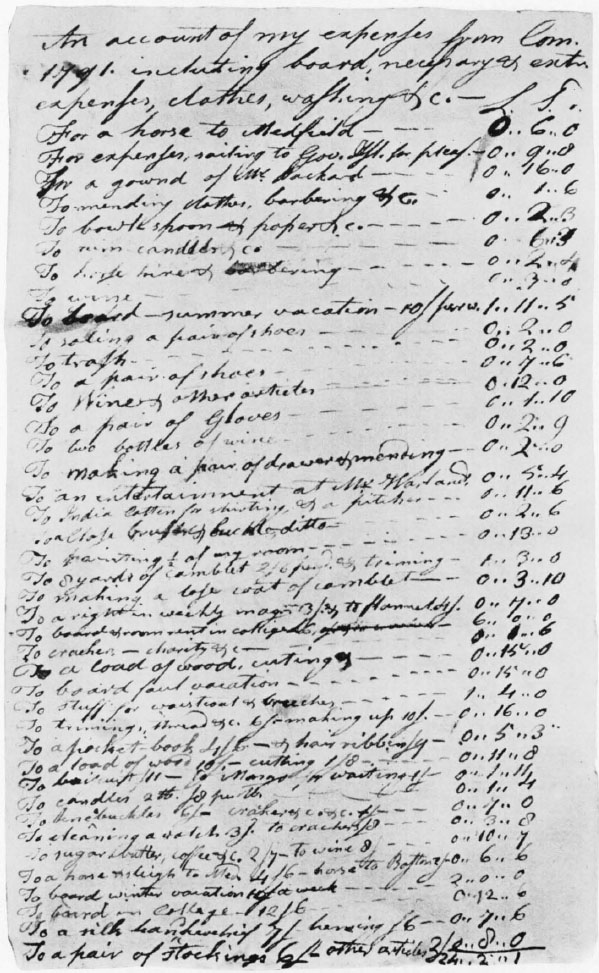 An account of my expenses from Com.
1791. including board, necessary & extra
expenses, clothes, washing &c. — L. S.
For a horse to Medfield — 0..6..0
For expenses, sailing to Gov. Isl. for pleas. — 0..9..8
For a gownd of Mr. Packard — 0..16..0
To mending clothes, barbering &c. 0.. 1..6
To bowl & spoon & paper &c. — 0..2..3
To rum candles &c — 0..6..
To horse hire & barbering — 0..2..
To wine — 0..3..0
To board — summer vacation — 10/ per w. 1..11..5
To soling a pair of shoes — 0..2..0
To trash — 0..2..0
To a pair of shoes — 0..7..6
To Wine & other articles 0..12..0
To a pair of Gloves — 0..1..10
To two bottles of wine 0..2..9
To making a pair of drawers & mending — 0..2..0
To an entertainment at Mr. Warland 0..5..4
To India Cotton for shirting, & a pitcher — 0..11..6
To a close brush & buckle ditto 0..2..6
To painting ½ of my room — 0..13..0
To 8 yards of camblet 2/6 & triming — 1..3..0
To making a lose coat of camblet — 0..3..10
To a right in weekly mag. 3/. & to flannel 4/. 0..7..0
To board & room rent in college 6..0..0
To crackers — charity &c — 0..0..6
To a load of wood, cuting & — 0..15..0
To board faul vacation — 0..15..0
To stuff for waistcoat & breeches — 1..4..0
To triming, thread &c. 6/ making up 10/. — 0..16..0
To a pocket-book 4/6 — & hair ribbin /9 — 0..5..3
To a load of wood 10/. — cutting 1/8 — 0..11..8
To /11 — to for waiting 0..1..11
To candles 8 0..1..4
To knee buckles 6/ — crackers &c. 0..7..0
To cleaning a watch 3/. to crackers /8 0..3..8
To sugar & butter, coffee &c. 2/7 — to wine 8/ — 0..10..7
To a horse & sleigh to 4/6 — horse to Boston 2/ — 0..6..6
To board winter vacation 10/ a week — 2..0..0
To board in College — 12/6 — 0..12..0
To a silk handkerchief 7/. heming /6 — 0..7..6
To a pair of Stockings 6/ — other articles 2/ 0..8..0
24..2..1